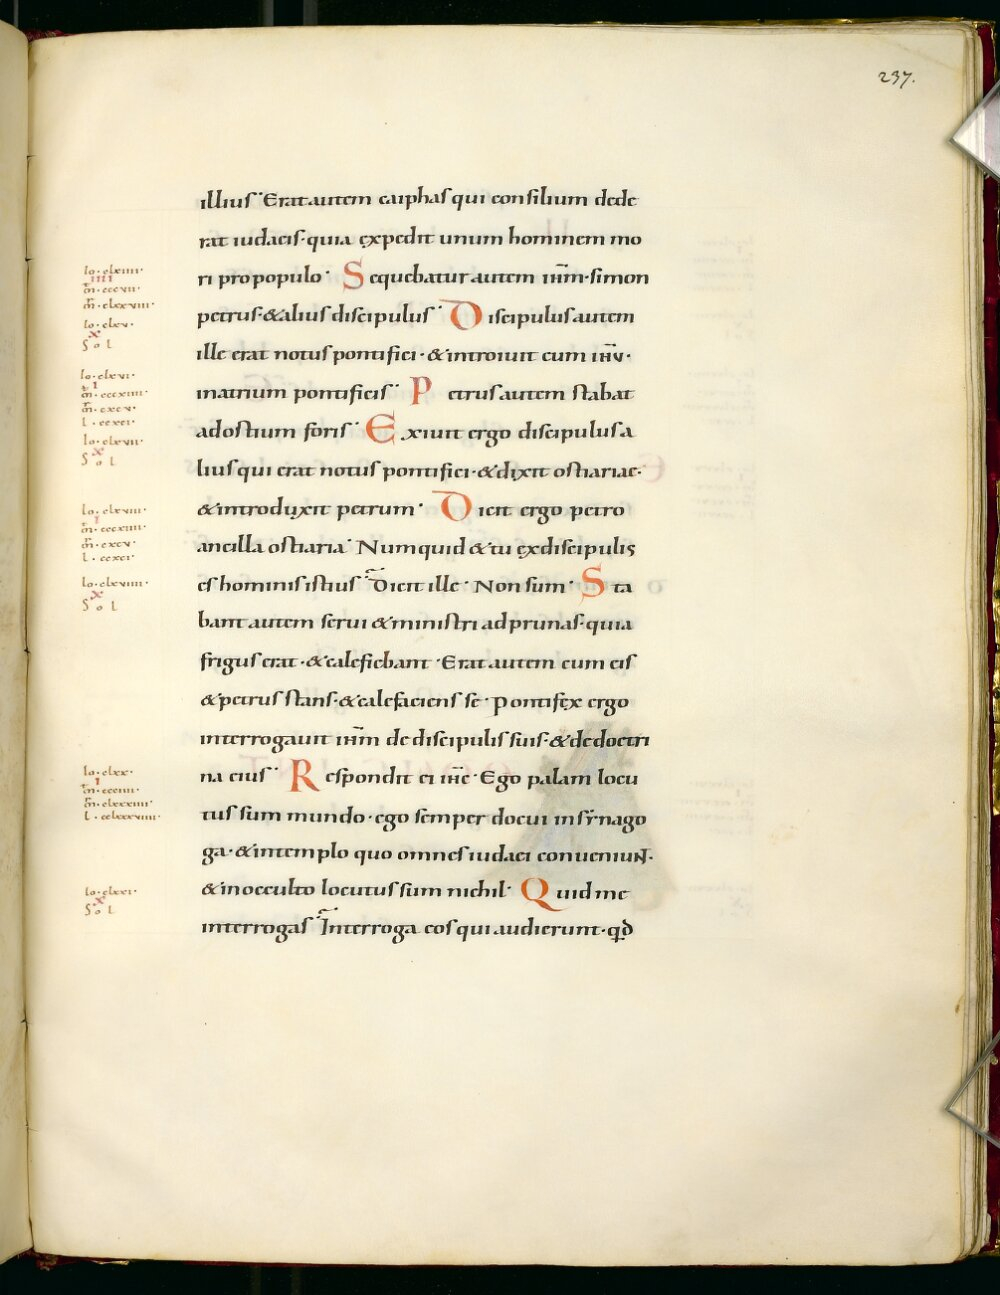 237.
illius · Erat autem caiphas qui consilium dede
rat iudaeis · quia expedit unum hominem mo
ri pro populo · Sequebatur autem ihm̅ · simon
petrus · & alius discipulus · Discipulus autem
ille erat notus pontifici · & introiuit cum ihu̅ ·
in atrium pontificis · Petrus autem stabat
ad ostium foris · Exiuit ergo discipulus a
lius qui erat notus pontifici · & dixit ostiariae ·
& introduxit petrum · Dicit ergo petro
ancilla ostiaria · Numquid & tu ex discipulis
es hominis istius · Dicit ille · Non sum · Sta
bant autem serui & ministri ad prunas · quia
frigus erat · & calefiebant · Erat autem cum eis
& petrus stans · & calefaciens se · Pontifex ergo
interrogauit ihm̅ de discipulis suis · & de doctri
na eius · Respondit ei ihc̅ · Ego palam locu
tus sum mundo · ego semper docui in synago
ga · & in templo quo omnes iudaei conueniunt ·
& in occulto locutus sum nichil · Quid me
interrogas · Interroga eos qui audierunt · qd̅
Io · clxiiii ·
iiii
Io · clxv ·
x
S o l
Io · clxvi ·
i
l · ccxci ·
Io · clxvii ·
x
S o l
Io · clxviii ·
i
l · ccxci ·
Io · clxviiii ·
x
S o l
Io · clxx ·
i
Io · clxxi ·
x
S o l